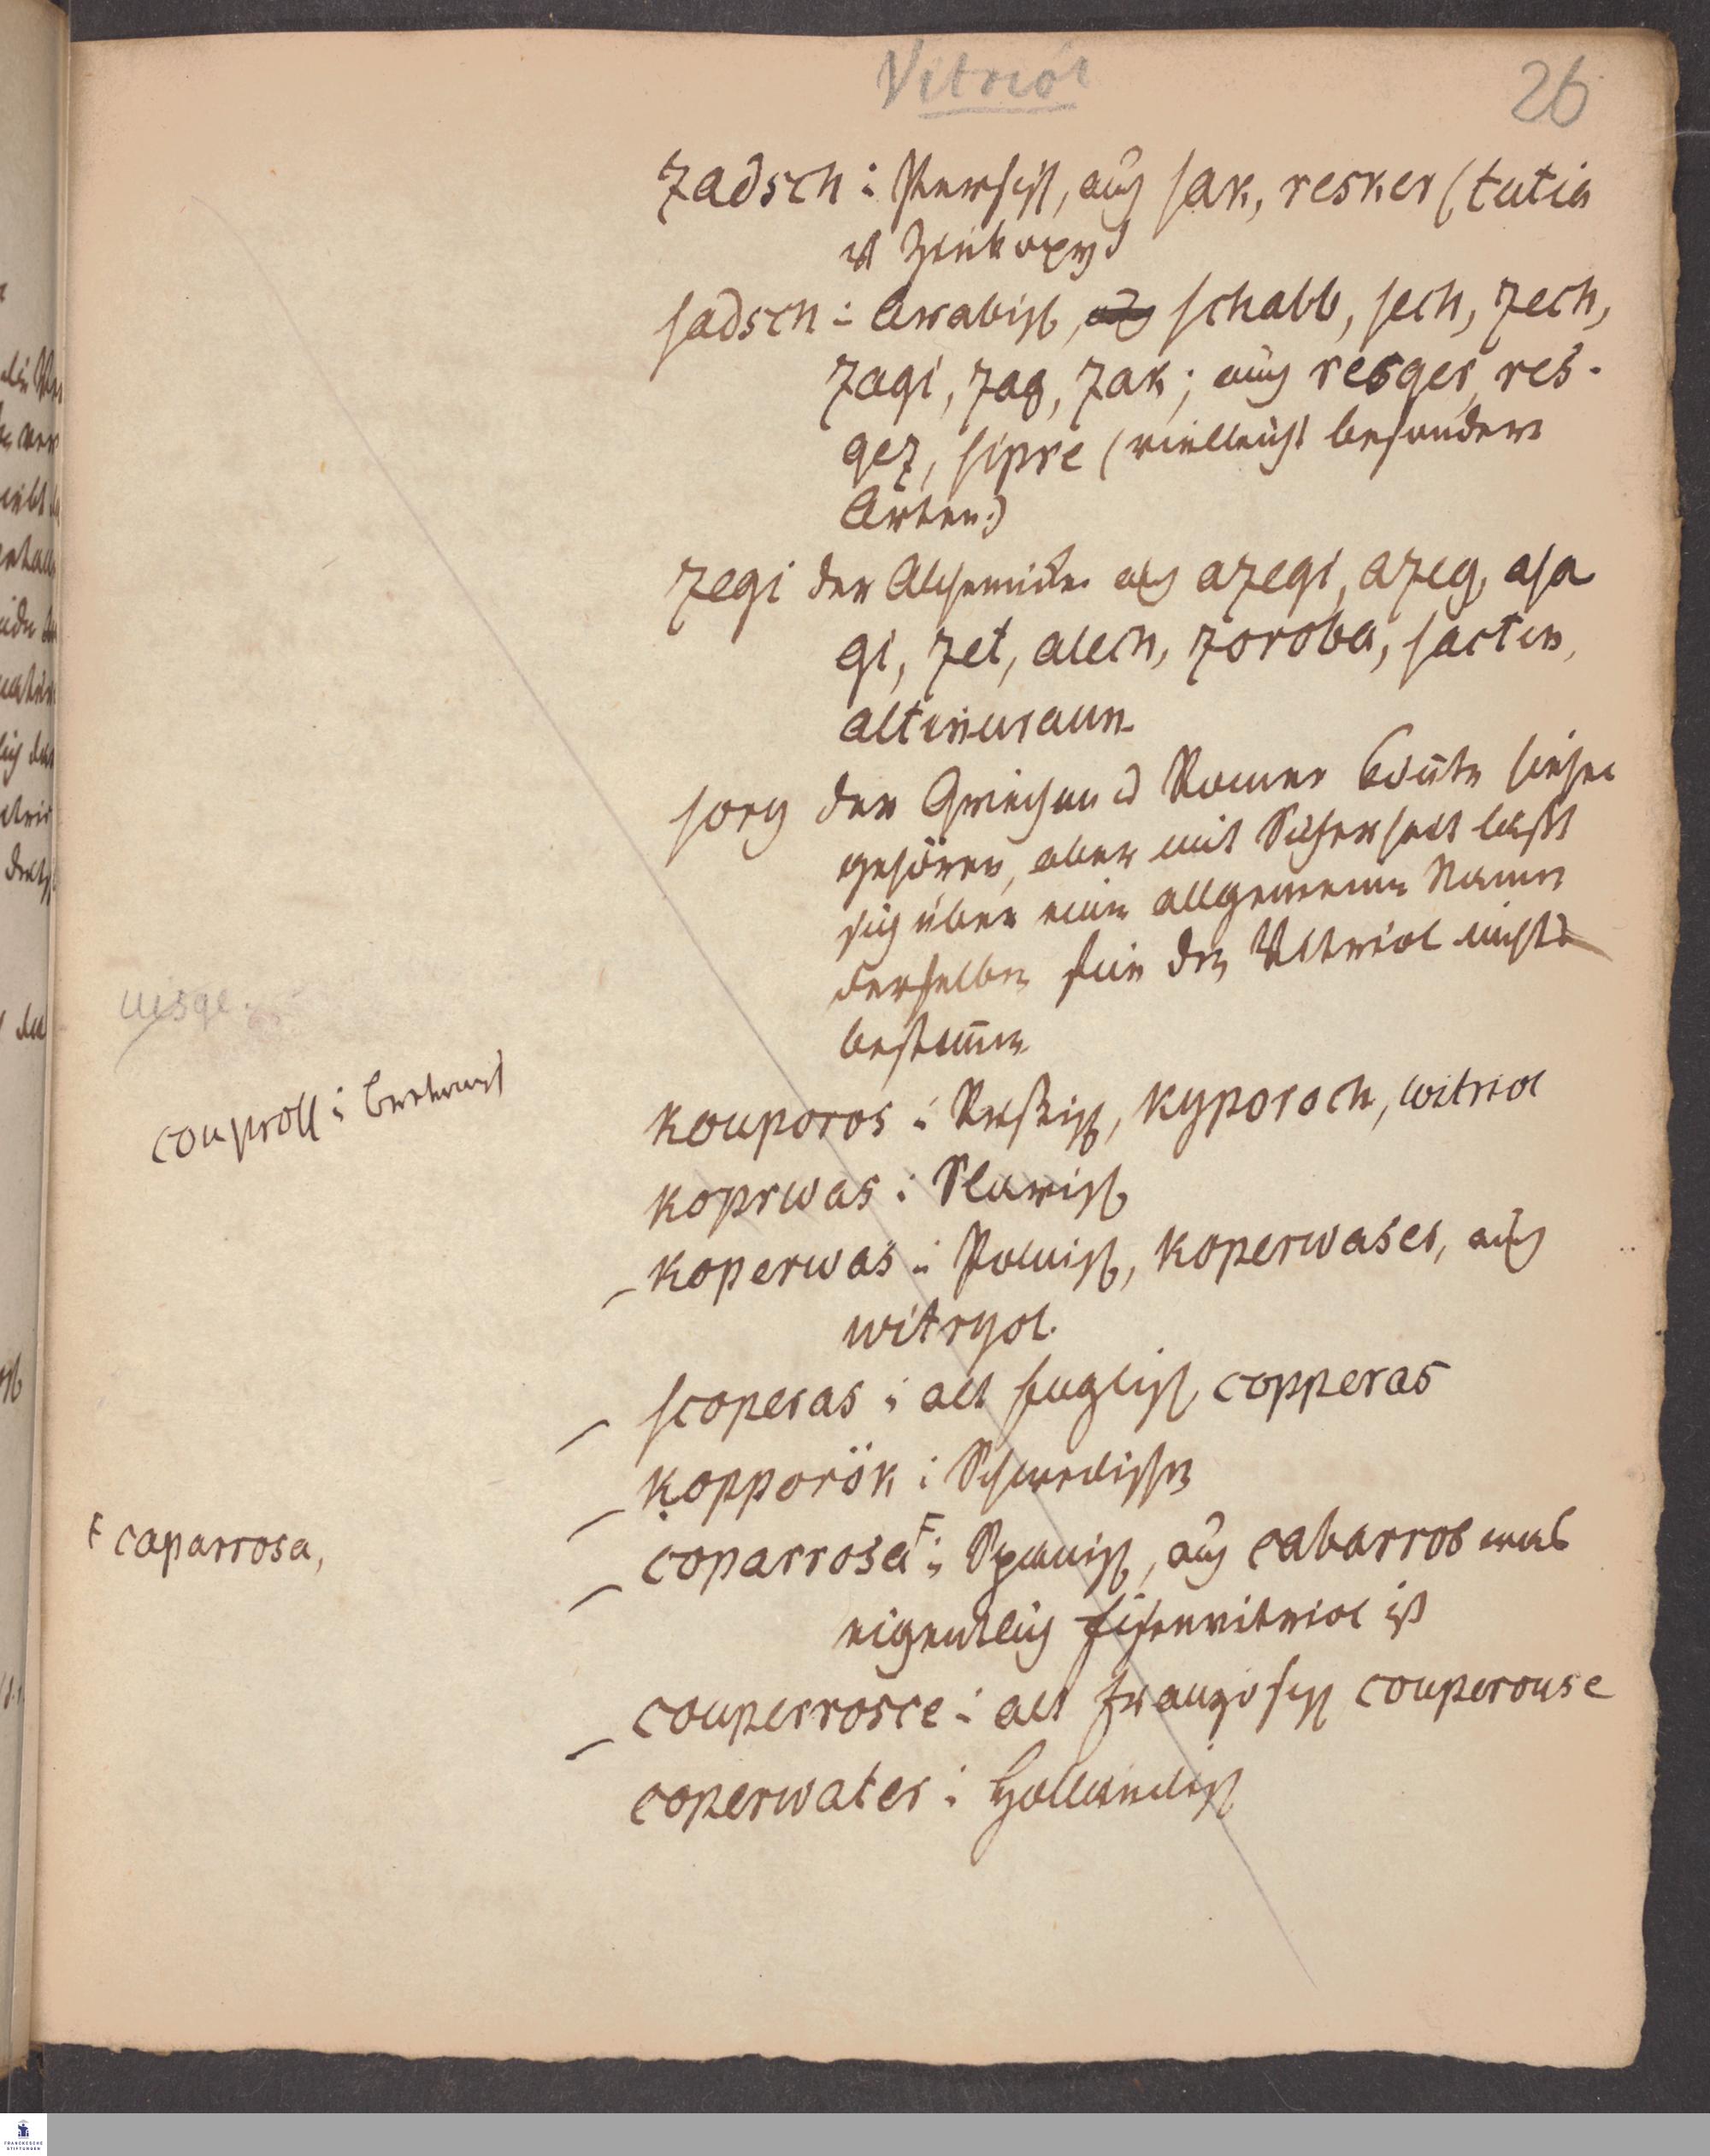 Vitriol
26
zadsch : Persisch, auch sak, resker (tutia
ist Zinkoxyd
sadsch : Arabisch, auch schabb, sech, zech,
zagi, zag, zak; auch resger, res-
gez, sipre (vielleicht besondere
Arten.)
zegi der Alchemisten auch azegi, azeg, asa
gi, zet, alech, zoroba, sactin,
altinuraum
sory der Griechen u Römer könte hieher
gehören, aber mit Sicherheit lässt
sich über einen allgemeinen Namen
derselben für den Vitriol nichts
bestimmen
couproll : Bretannisch
kouporos : Russisch, kyporoch, witriol
koprwas : Slawisch
koperwas : Polnisch, koperwaser, auch
witryol.
scoperas : alt Englisch copperas
kopporök : Schwedischen
F caparrosa,
coparrosa F : Spanisch, auch cabarros was
eigentlich Eisenvitriol ist
couperrosce : alt französisch couperouse
coperwater : Holländisch
FRANCKESCHE
STIFTUNGEN